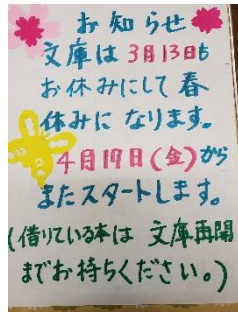 お知らせ
文庫は 3月13日も
お休みにして 春
休みに なります。
4月17日(金)から
またスタートします。
(借りている本は 文庫再開
までお待ちください。)